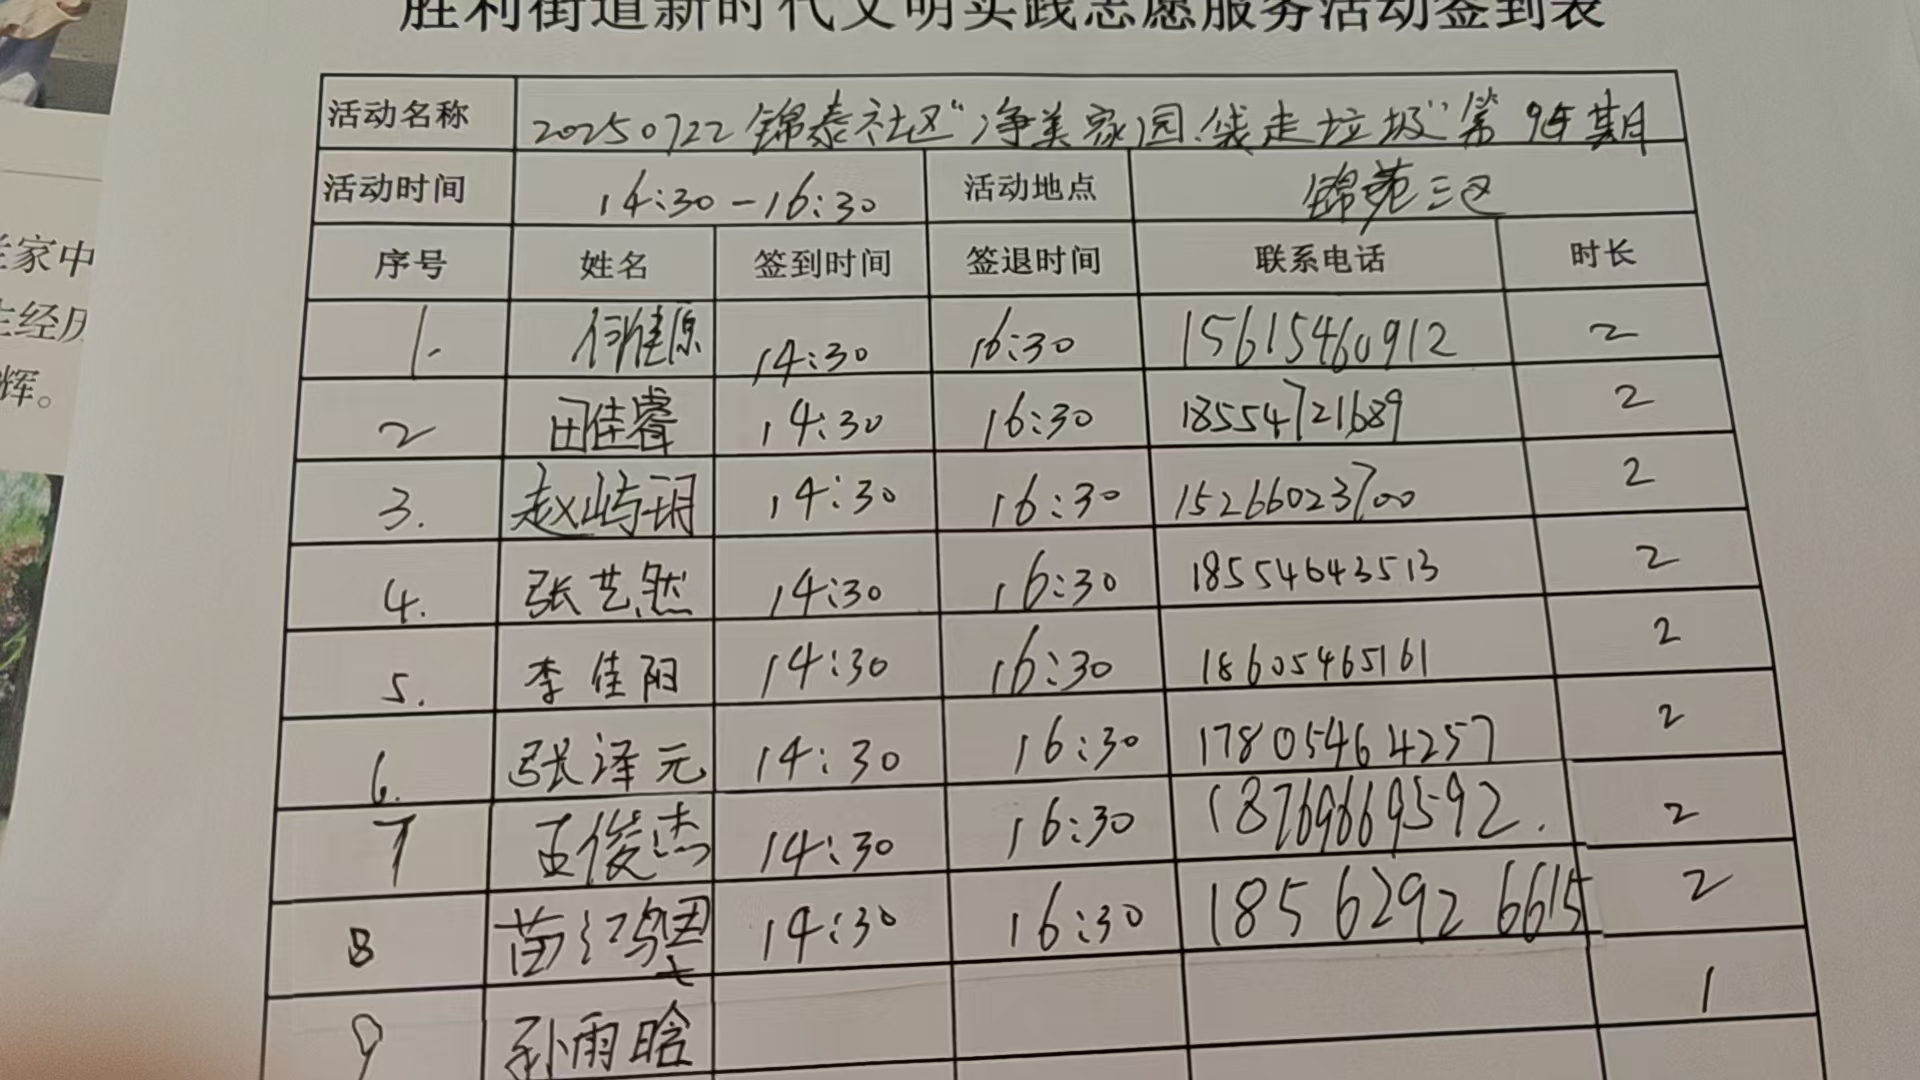 胜利街道新时代文明实践志愿服务活动签到表
活动名称 20250722锦泰社区“净美家园·袋走垃圾”第95期
活动时间 14:30-16:30 活动地点 锦苑三区
序号 姓名 签到时间 签退时间 联系电话 时长
1. 何佳原 14:30 16:30 15615460912 2
2 田佳睿 14:30 16:30 18554721689 2
3. 赵屿玥 14:30 16:30 15266023700 2
4. 张艺然 14:30 16:30 18554643513 2
5. 李佳阳 14:30 16:30 18605465161 2
6. 张泽元 14:30 16:30 17805464257 2
7 王俊杰 14:30 16:30 18769669592. 2
8 苗江 14:30 16:30 18562926615 2
9 孙雨晗 1
家中
经历
辉。